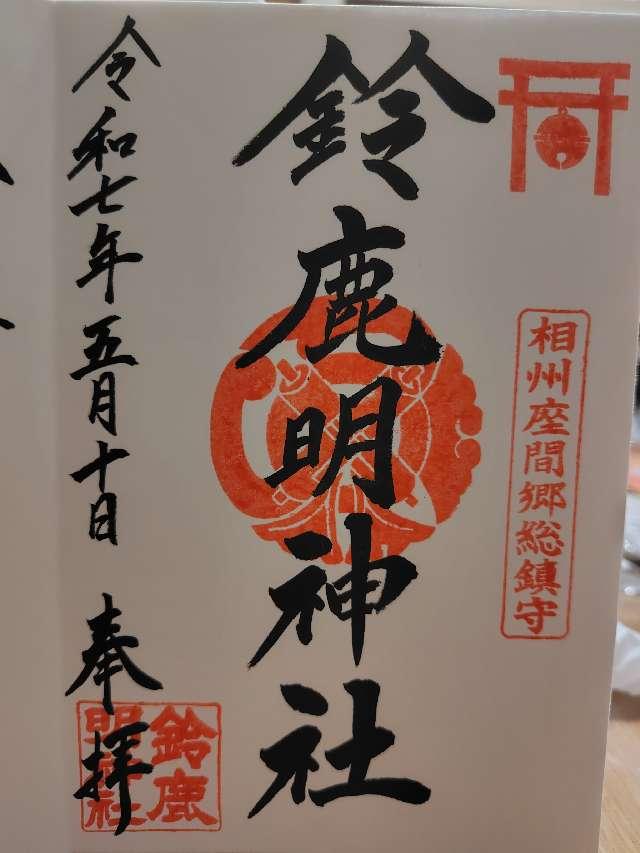 相州座間郷総鎮守
鈴鹿明神社
令和七年五月十日
奉拝
鈴鹿
明神社